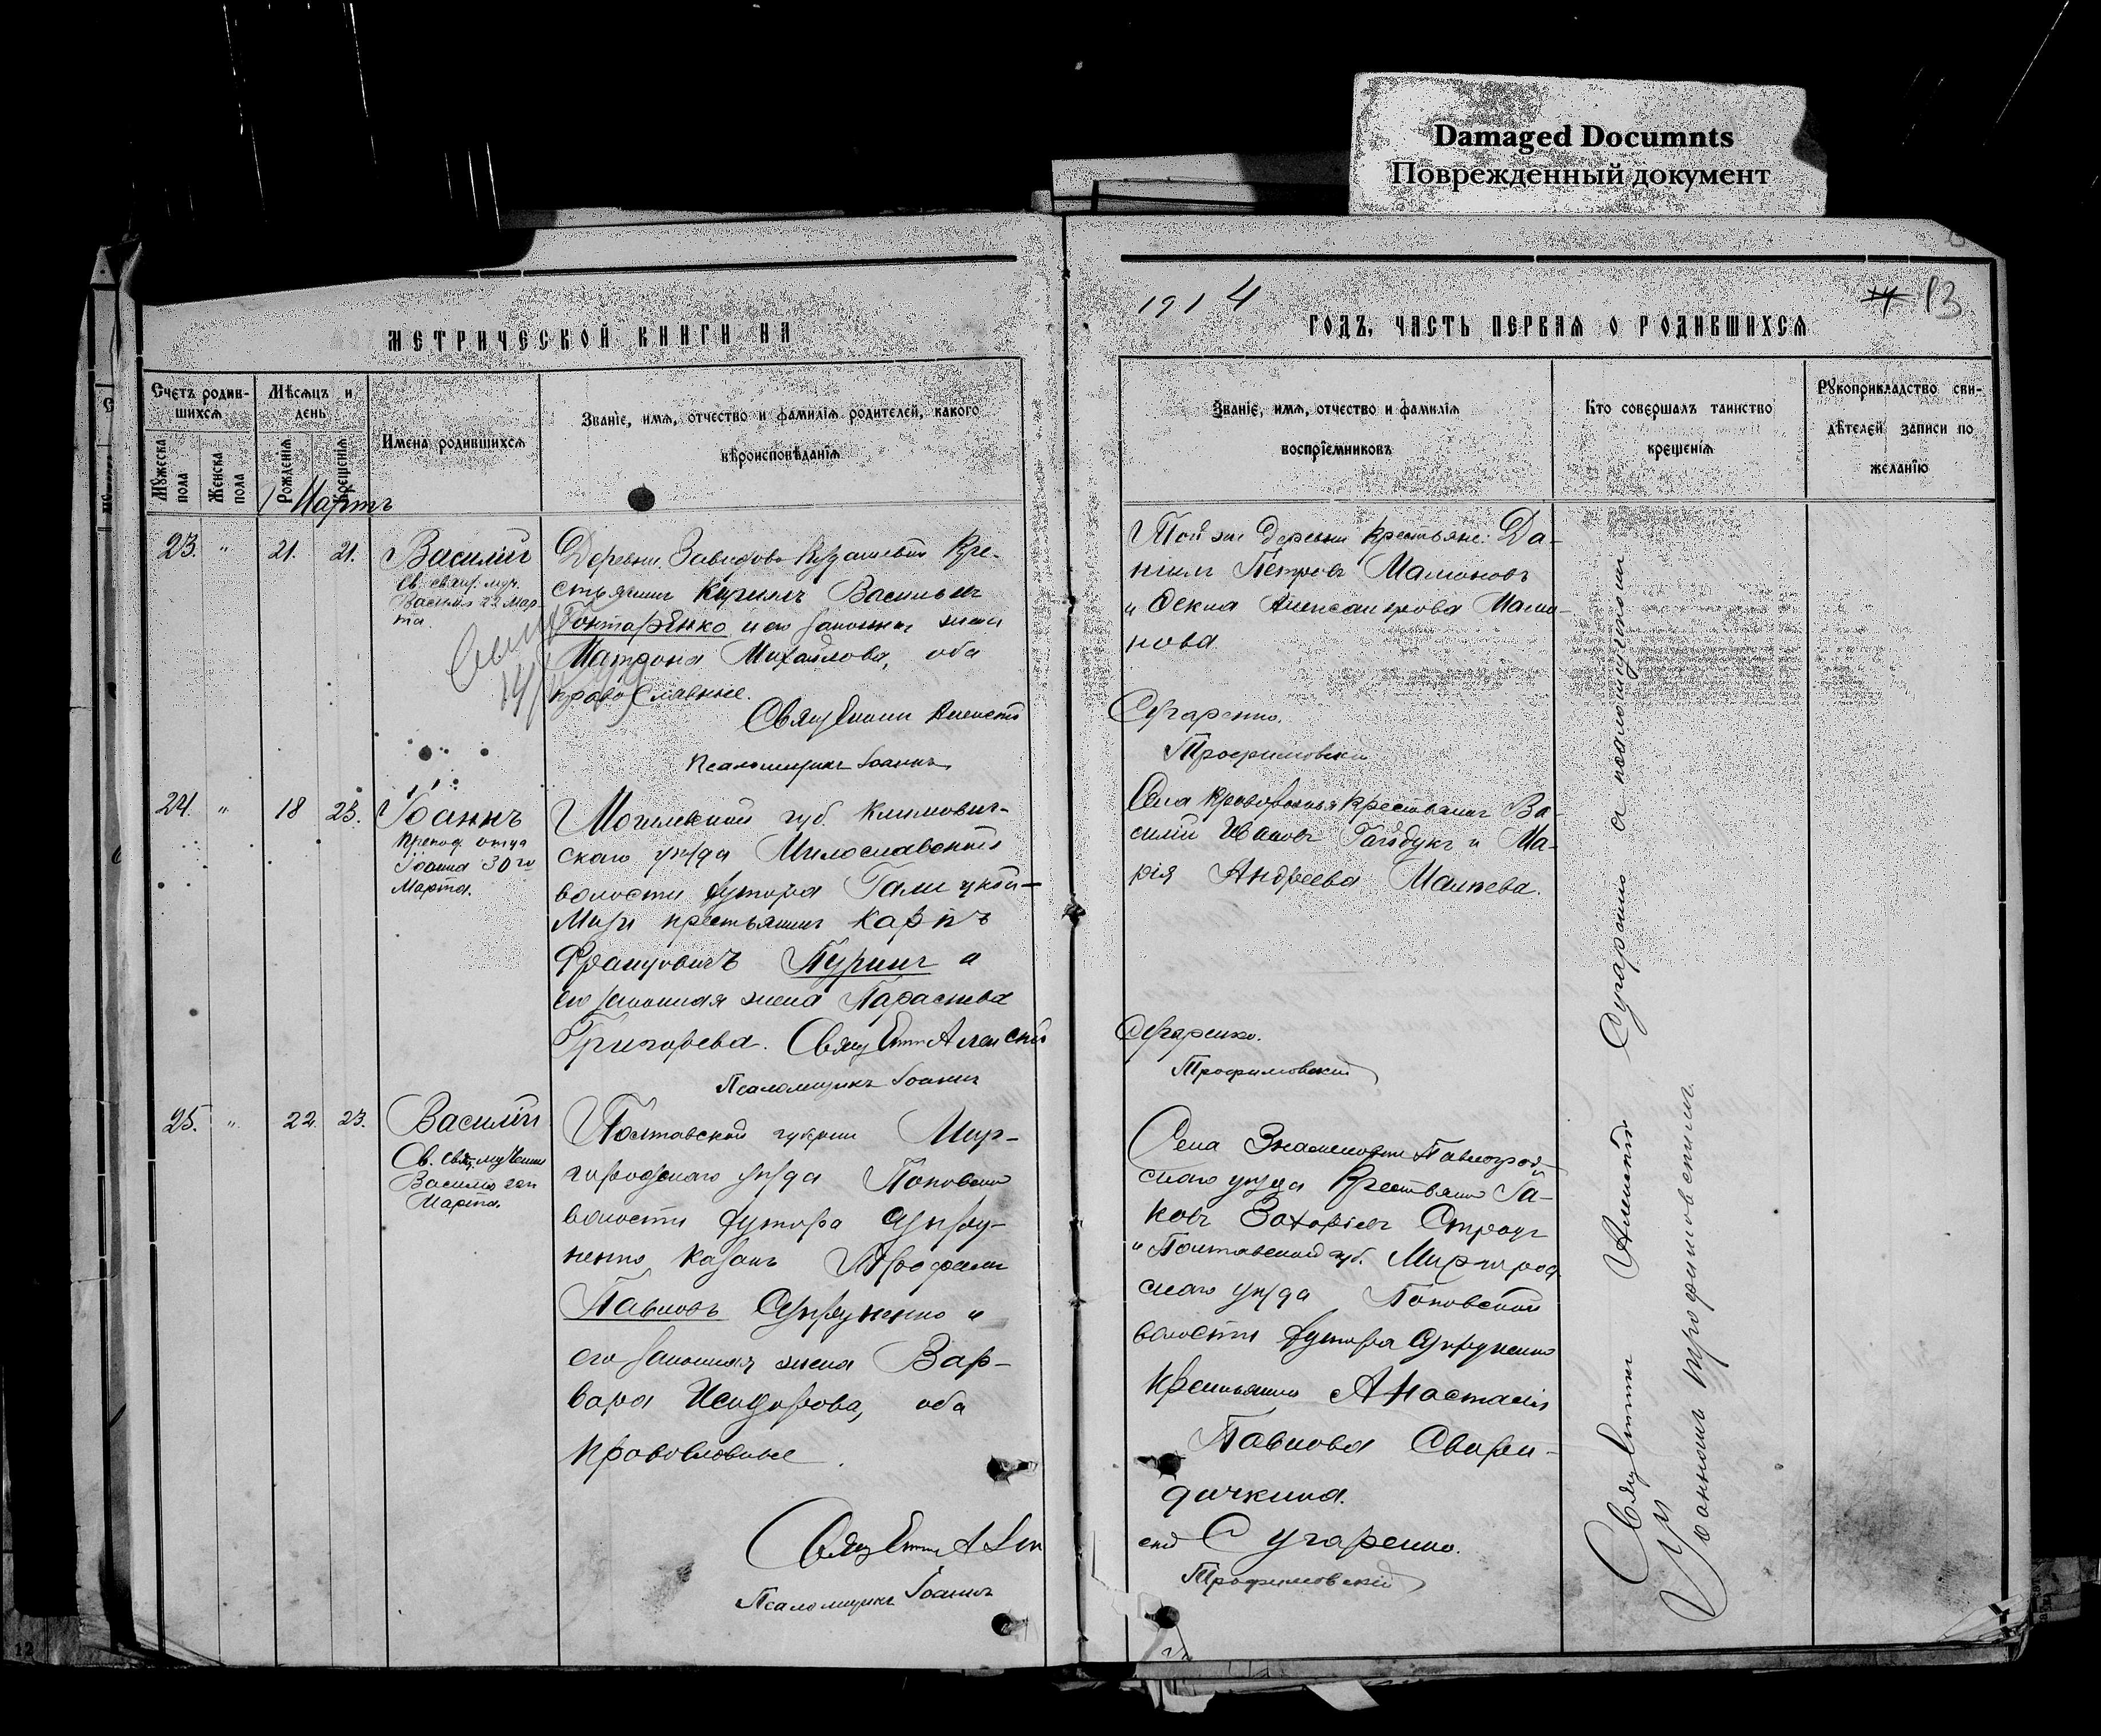 Damaged Documnts
Поврежденный документ
МЕТРИЧЕСКОЙ КНИГИ НА
1914
ГОДЪ, ЧАСТЬ ПЕРВАЯ О РОДИВШИХСЯ
13
Счетъ родив-
шихся
Мѣсяцъ и
день
Мужеска
пола
Женска
пола
Рожденія
Крещенія
Имена родившихся
Званіе, имя, отчество и фамилія родителей, какого
вѣроисповѣданія
Званіе, имя, отчество и фамилія
воспріемниковъ
Кто совершалъ таинство
крещенія
Рукоприкладство сви-
дѣтелей записи по
желанію
Мартъ
23. " 21. 21.
Василій
Василія 22 Мар-
та.
Деревни Кре-
стьянинъ Кириллъ Васильевъ
Гонтаренко и его законная жена
Матрона Михайлова, оба
православные.
Священникъ Алексѣй
Псаломщикъ Іоаннъ
Той же деревни крестьяне: Да-
ніилъ Петровъ Мамоновъ
и Ѳекла Александрова Мамо-
нова
Сугаренко.
Трофимовскій
24. " 18 23.
Іоаннъ
Препод. отца
Іоанна 30го
Марта.
Могилевской губ. Климович-
скаго уѣзда Милославской
волости хутора
крестьянинъ Карпъ
Францовичъ Пуринъ и
его законная жена Параскева
Григорьева. Священникъ Алексѣй
Псаломщикъ Іоаннъ
Села крестьянинъ Ва-
силій Ивановъ Гайдукъ и Ма-
рія Андреева
Сугаренко.
Трофимовскій
25. " 22. 23.
Василій
Св. Свящ. мученика
Василія 22
Марта.
Полтавской губерніи Мир-
городскаго уѣзда Поповской
волости хутора Супру-
ненко казакъ
Павловъ Супруненко и
его законная жена Вар-
вара Исидорова, оба
православные
Священникъ Алек
Псаломщикъ Іоаннъ
Села Знаменовки Павлоград-
скаго уѣзда крестьянинъ Іа-
ковъ Захаріевъ
и Полтавской губ. Миргород-
скаго уѣзда Поповской
волости хутора Супруненко
крестьянка Анастасія
Павлова Свири-
дичкина.
сѣй Сугаренко.
Трофимовскій
Священникъ Алексѣй Сугаренко съ псаломщикомъ
Іоанномъ Трофимовскимъ.
12